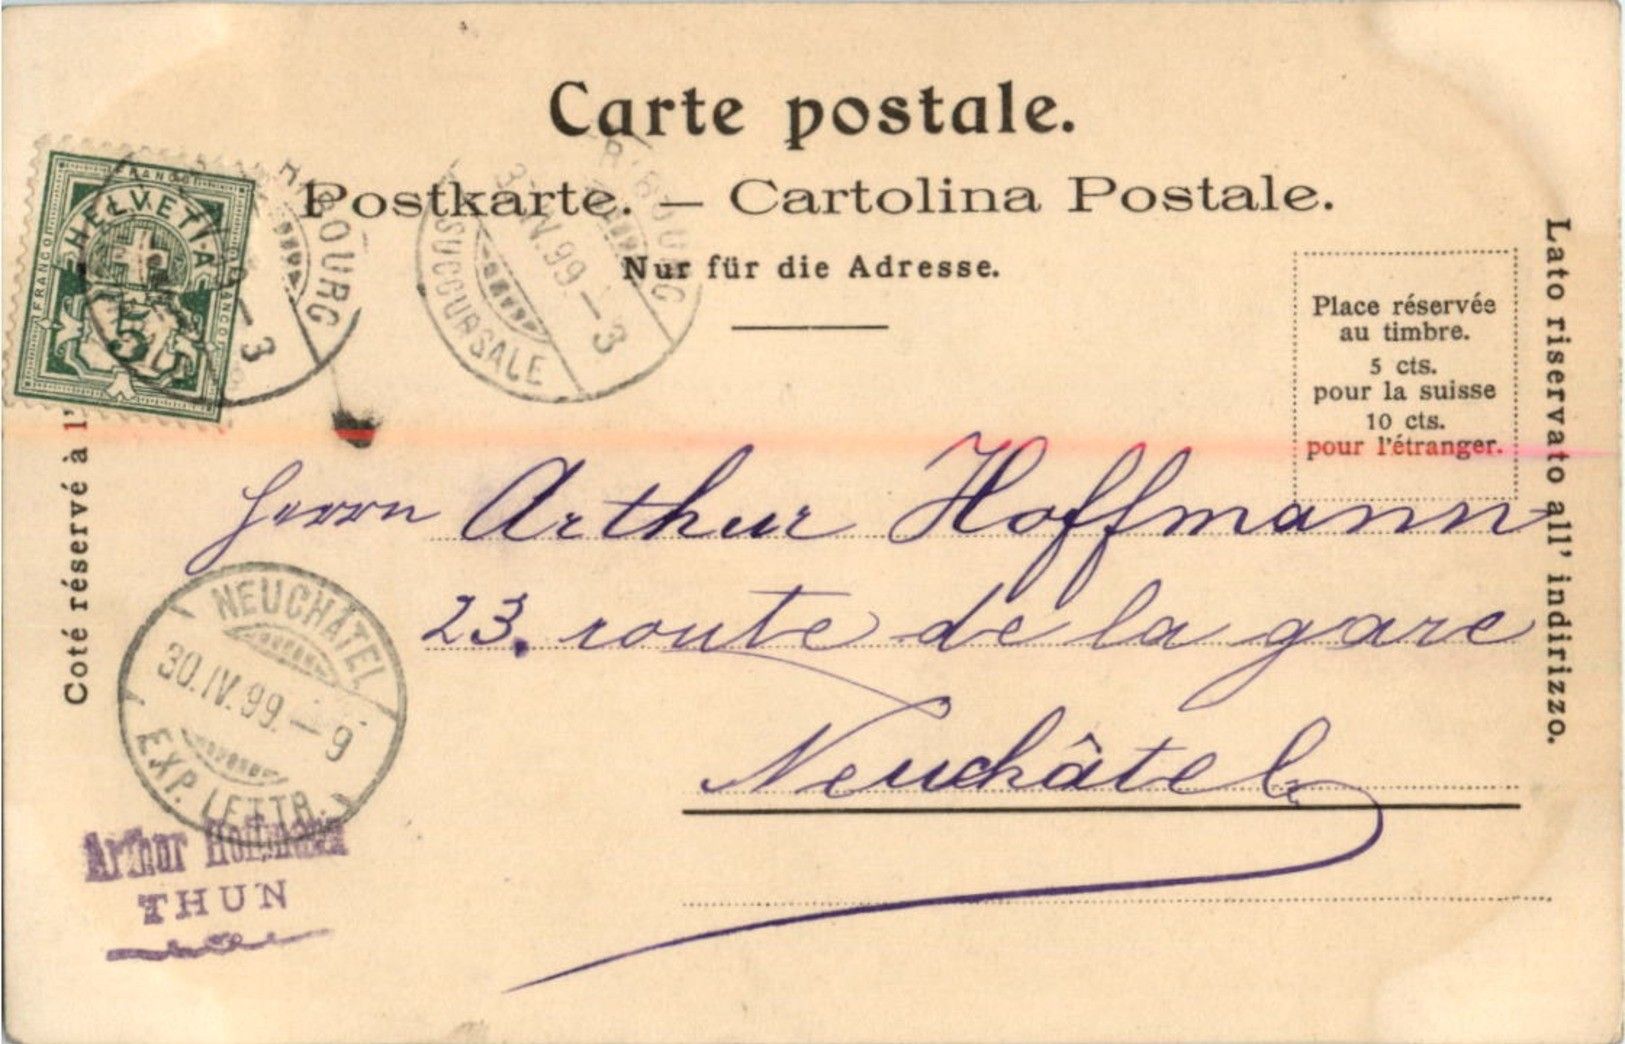 Carte postale.
Postkarte. — Cartolina Postale.
Nur für die Adresse.
FRANCO
HELVETIA
FRANCO
FRANCO
5
BOURG
-3
SUCCURSALE
IV.99.-3
Place réservée
au timbre.
5 cts.
pour la suisse
10 cts.
pour l'étranger.
Coté réservé à l'
Lato riservato all' indirizzo.
Herrn Arthur Hoffmann
23. route de la gare
Neuchâtel
NEUCHÂTEL
30.IV.99.-9
EXP. LETTR.
Arthur Hoffmann
THUN